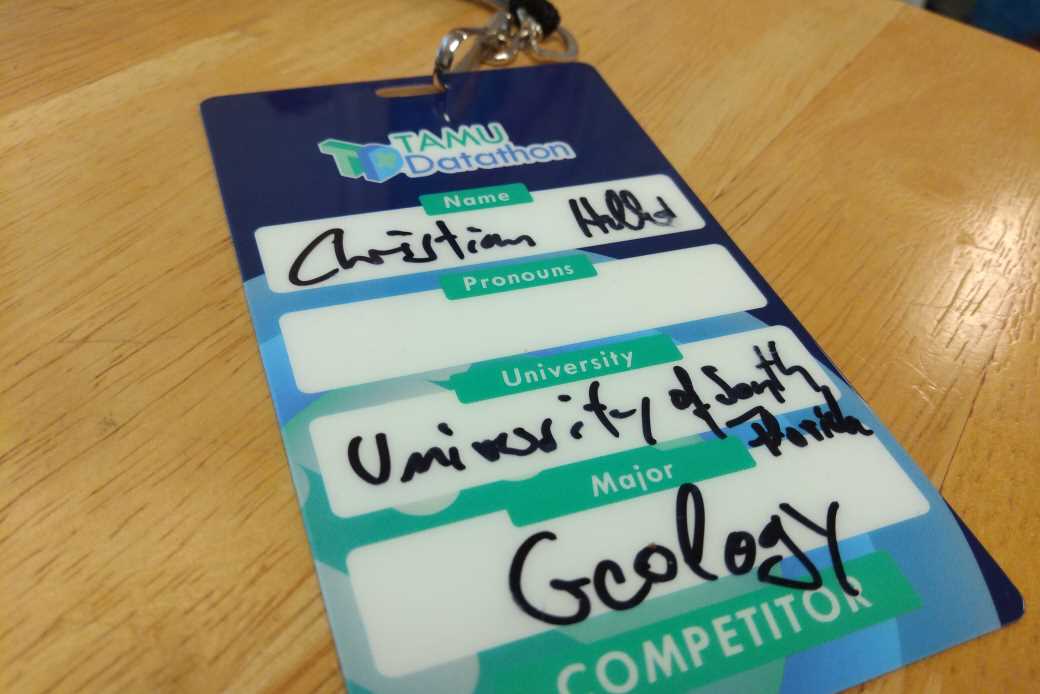 TAMU
Datathon
Name
Christian
Pronouns
University
University of South
Florida
Major
Geology
COMPETITOR